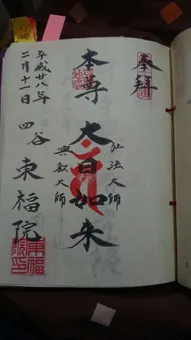 奉拝
弘法大師
本尊 大日如来
興教大師
平成廿八年
二月十一日
四谷 東福院